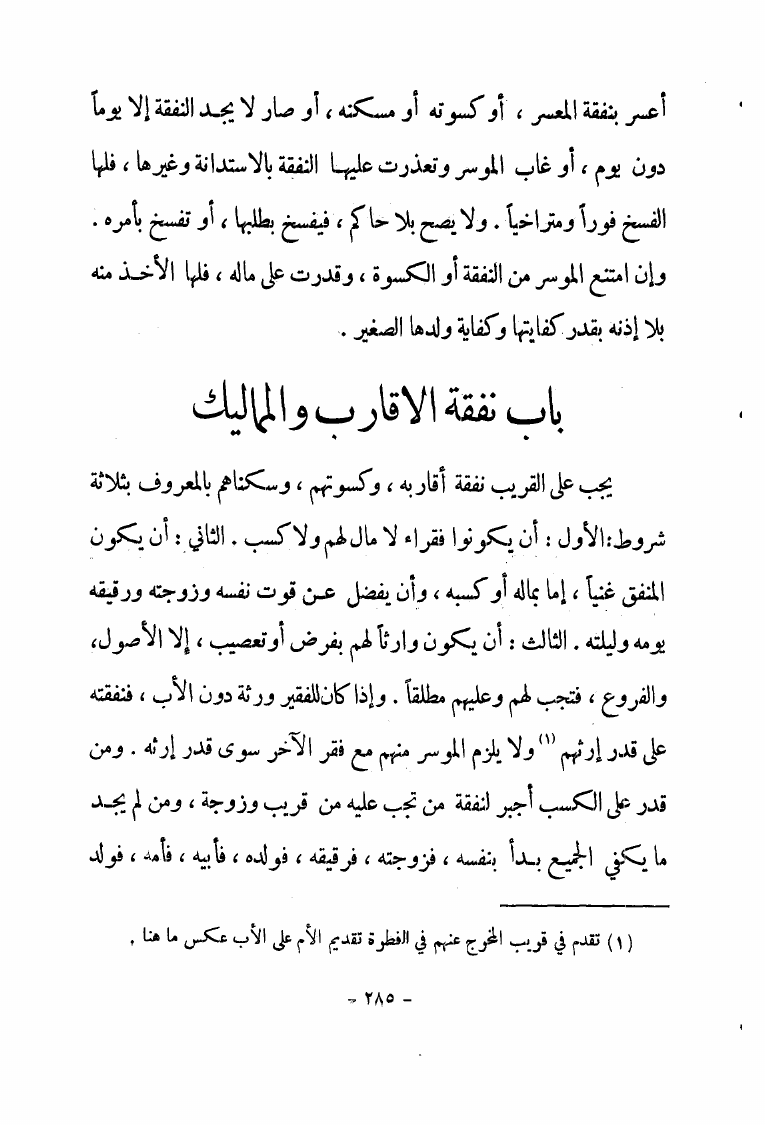 أعسر بنفقة المعسر ، أو كسوته أو مسكنه ، أو صار لا يجد النفقة إلا يوماً
دون يوم ، أو غاب الموسر وتعذرت عليها النفقة بالاستدانة وغيرها ، فلها
الفسخ فوراً ومتراخياً . ولا يصح بلا حاكم ، فيفسخ بطلبها ، أو تفسخ بأمره .
وإن امتنع الموسر من النفقة أو الكسوة ، وقدرت على ماله ، فلها الأخذ منه
بلا إذنه بقدر كفايتها وكفاية ولدها الصغير .
باب نفقة الاقارب والمماليك
يجب على القريب نفقة أقاربه ، وكسوتهم ، وسكناهم بالمعروف بثلاثة
شروط: الأول : أن يكونوا فقراء لا مال لهم ولا كسب . الثاني : أن يكون
المنفق غنياً ، إما بماله أو كسبه ، وأن يفضل عن قوت نفسه وزوجته ورقيقه
يومه وليلته . الثالث : أن يكون وارثاً لهم بفرض أو تعصيب ، إلا الأصول،
والفروع ، فتجب لهم وعليهم مطلقاً . وإذا كان للفقير ورثة دون الأب ، فنفقته
على قدر إرثهم (١) ولا يلزم الموسر منهم مع فقر الآخر سوى قدر إرثه . ومن
قدر على الكسب أجبر لنفقة من تجب عليه من قريب وزوجة ، ومن لم يجد
ما يكفي الجميع بدأ بنفسه ، فزوجته ، فرقيقه ، فولده ، فأبيه ، فأمه ، فولد
(١) تقدم في قريب المخرج عنهم في الفطرة تقديم الأم على الأب عكس ما هنا .
- ٢٨٥ -